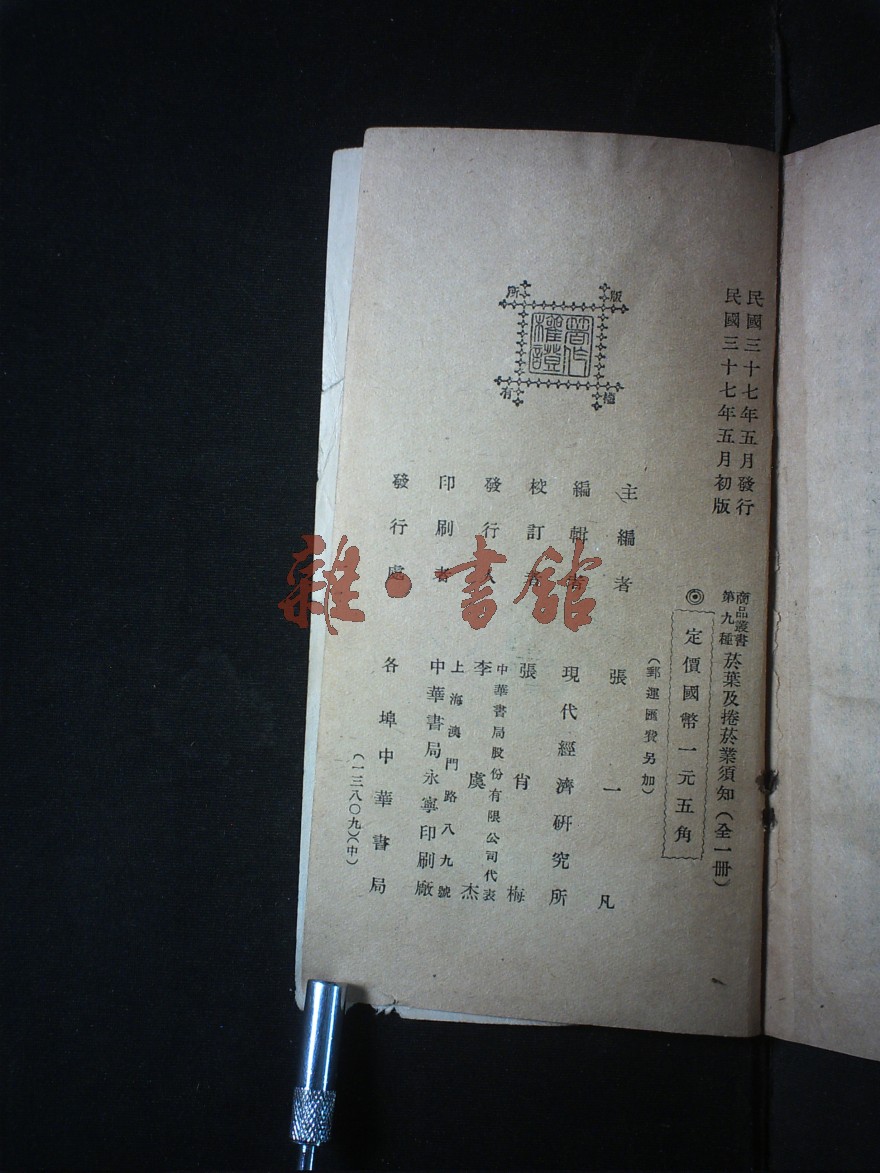 民國三十七年五月發行
民國三十七年五月初版
商品叢書
第九種
菸葉及捲菸業須知（全一冊）
◎定價國幣一元五角
（郵運匯費另加）
主編者 張一凡
編輯者 現代經濟研究所
校訂者 張肖梅
發行人 李虞杰
中華書局股份有限公司代表
印刷者 中華書局永寧印刷廠
上海澳門路八九號
發行處 各埠中華書局
（一三八〇九）（中）
版權所有
著作權證
雜·書館